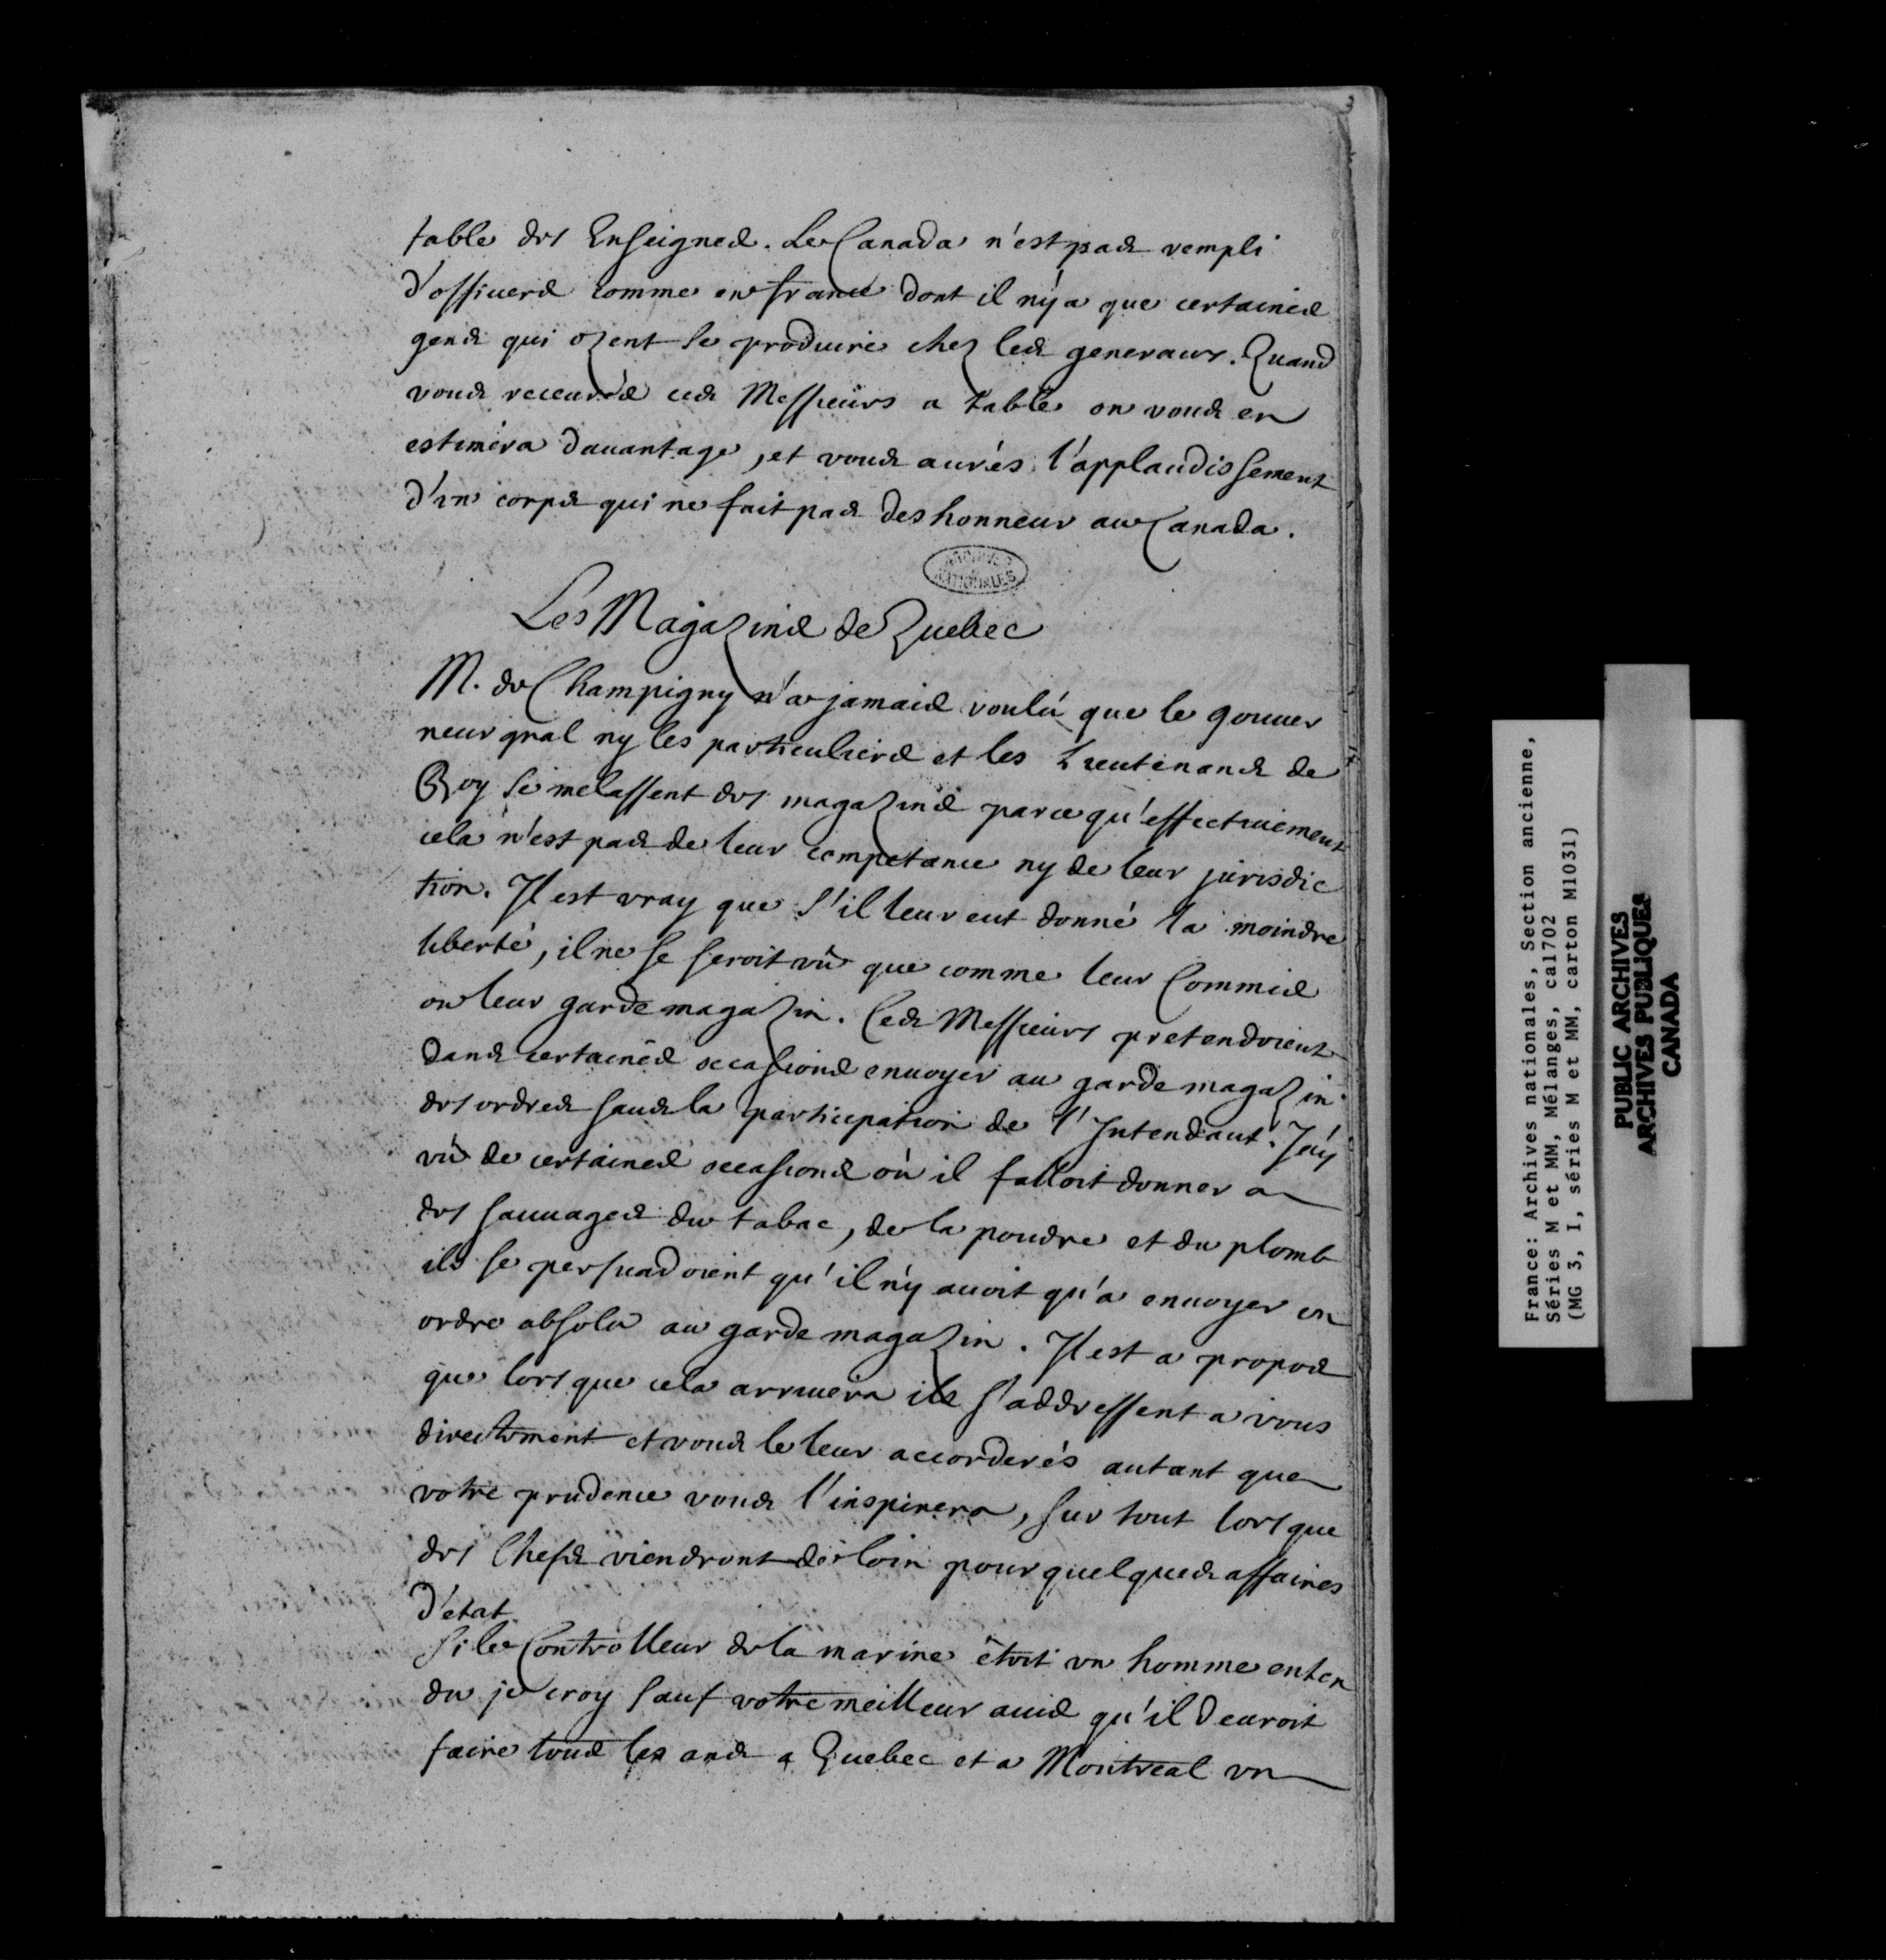 3
table des Enseignes. Le Canada n'est pas rempli
d'officiers comme en france dont il n'y a que certaines
gens qui ozent se produire chez les generaux. Quand
vous recevrés ces Messieurs a table on vous en
estimera davantage, et vous aurés l'applaudissement
d'un corps qui ne fait pas deshonneur au Canada.
ARCHIVES NATIONALES
Les Magazins de Quebec
M. de Champigny n'a jamais voulú que le gouver
neur gnal ny les particuliers et les Lieutenans de
Roy se melassent des magazins parce qu'effectivement
cela n'est pas de leur competance ny de leur jurisdic
tion. Il est vray que s'il leur eut donné la moindre
liberté, il ne se seroit vû que comme leur Commis
ou leur garde magazin. Ces Messieurs pretendoient
dans certaines occasions envoyer au garde magazin
des ordres sans la participation de l'Intendant. J'ay
vû de certaines occasions où il falloit donner a
des sauvages du tabac, de la poudre et du plomb
ils se persuadoient qu'il n'y avoit qu'a envoyer un
ordre absolu au garde magazin. Il est a propos
que lorsque cela arrivera ils s'addressent a vous
directement et vous le leur accorderés autant que
votre prudence vous l'inspirera, sur tout lorsque
des Chefs viendront de loin pour quelques affaires
d'état
Si le Controlleur de la marine étoit un homme enten
du je croy sauf votre meilleur avis qu'il devroit
faire tous les ans a Quebec et a Montreal un
France: Archives nationales, Section ancienne,
Séries M et MM, Mélanges, ca1702
(MG 3, I, séries M et MM, carton M1031)
PUBLIC ARCHIVES
ARCHIVES PUBLIQUES
CANADA